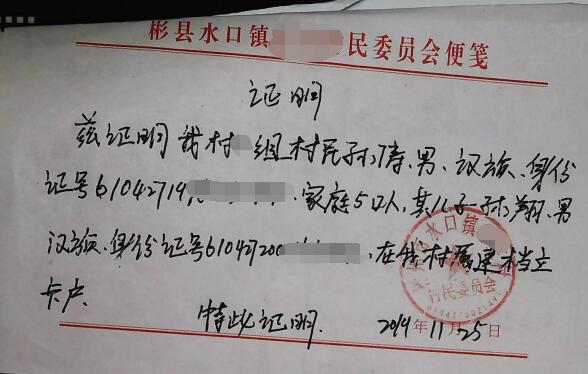 彬县水口镇 民委员会便笺
证明
兹证明我村 组村民孙涛、男、汉族、身份
证号61042719 、家庭5口人,其儿子孙翔、男
汉族、身份证号610427200 ,在我村属建档立
卡户.
特此证明.
2019年11月25日
水口镇
村民委员会